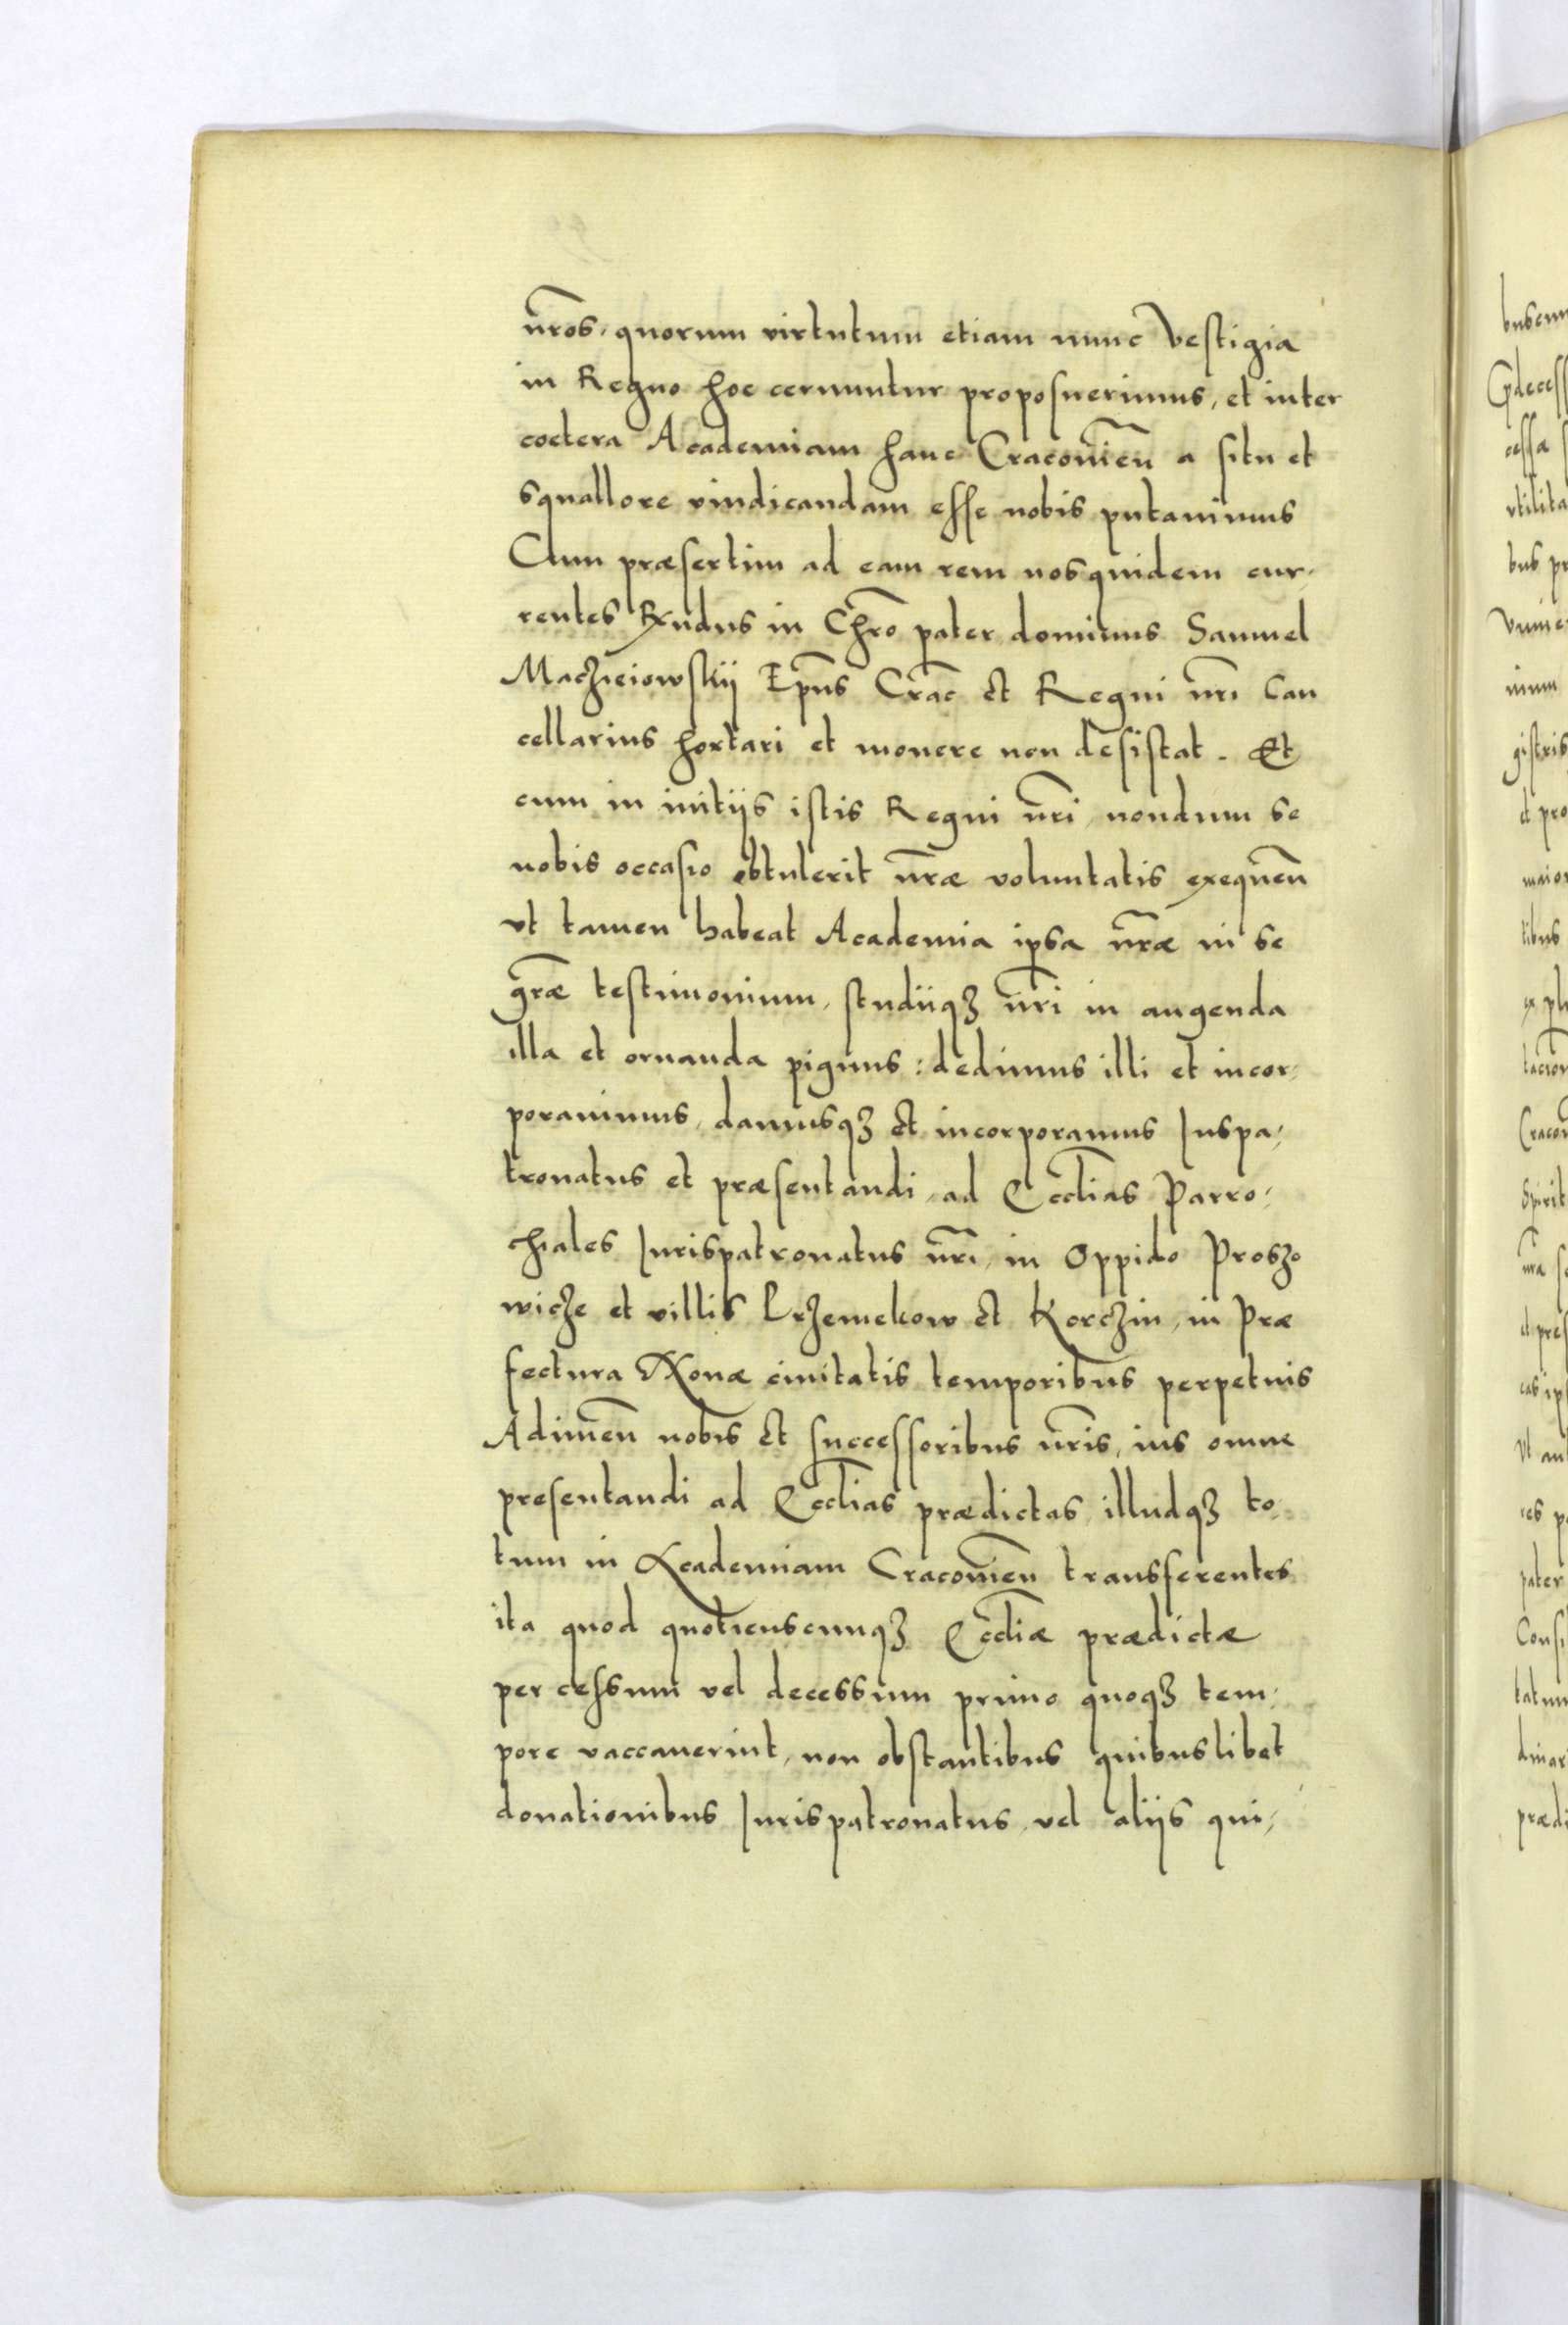 nr̃os, quorum virtutum etiam nunc vestigia
in Regno hoc cernuntur proposuerimus, et inter
coetera Academiam hanc Cracouien̄ a situ et
squallore vindicandam esse nobis putauimus
Cum præsertim ad eam rem nos quidem cur-
rentes Rx̃ndus in Chr̃o pater dominus Samuel
Maczieiowskij Ep̃us Crac̃ et Regni nr̃i Can
cellarius hortari et monere non desistat. Et
cum in initijs istis Regni nr̃i, nondum se
nobis occasio obtulerit nr̃æ voluntatis exequen̄
vt tamen habeat Academia ipsa nr̃æ in se
gr̃æ testimonium, studiiqꝫ nr̃i in augenda
illa et ornanda pignus: dedimus illi et incor-
porauimus, damusqꝫ et incorporamus Iuspa-
tronatus et præsentandi, ad Eccl̃ias Parro-
chiales Iurispatronatus nr̃i, in Oppido Proszo
wicze et villis Lrzemekow et Korczin, in Præ
fectura Nonæ ciuitatis temporibus perpetuis
Adimen̄ nobis et successoribus nr̃is, ius omne
presentandi ad Eccl̃ias prædictas, illudqꝫ to-
tum in Academiam Cracouien̄ transferentes
ita quod quotienscunqꝫ Eccl̃iæ prædictæ
per cessum vel decessum primo quoqꝫ tem-
pore vaccauerint, non obstantibus quibuslibet
donationibus Iurispatronatus, vel aliis qui-